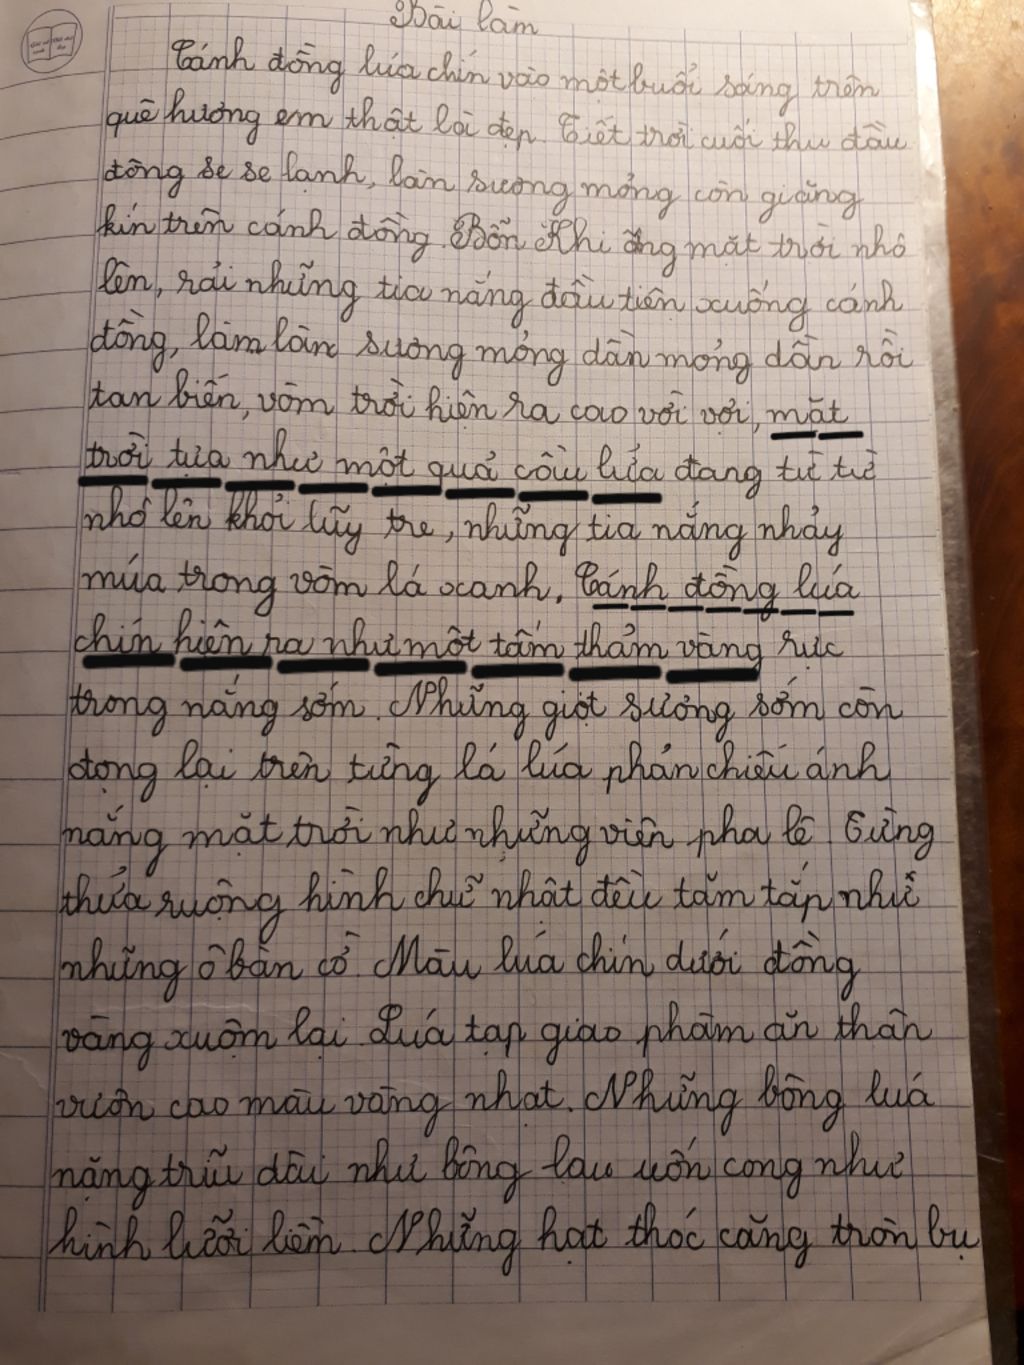 Bài làm
Cánh đồng lúa chín vào một buổi sáng trên
quê hương em thật là đẹp. Tiết trời cuối thu đầu
đông se se lạnh, làn sương mỏng còn giăng
kín trên cánh đồng. Khi ông mặt trời nhô
lên, rải những tia nắng đầu tiên xuống cánh
đồng, làm làn sương mỏng dần mỏng dần rồi
tan biến, vòm trời hiện ra cao vời vợi, mặt
trời tựa như một quả cầu lửa đang từ từ
nhô lên khỏi lũy tre, những tia nắng nhảy
múa trong vòm lá xanh. Cánh đồng lúa
chín hiện ra như một tấm thảm vàng rực
trong nắng sớm. Những giọt sương sớm còn
đọng lại trên từng lá lúa phản chiếu ánh
nắng mặt trời như những viên pha lê. Từng
thửa ruộng hình chữ nhật đều tăm tắp như
những ô bàn cờ. Màu lúa chín dưới đồng
vàng xuộm lại. Lúa tạp giao phàm ăn thân
vươn cao màu vàng nhạt. Những bông luá
nặng trĩu dâu như bông lau uốn cong như
hình lưỡi liềm. Những hạt thóc căng tròn bụ